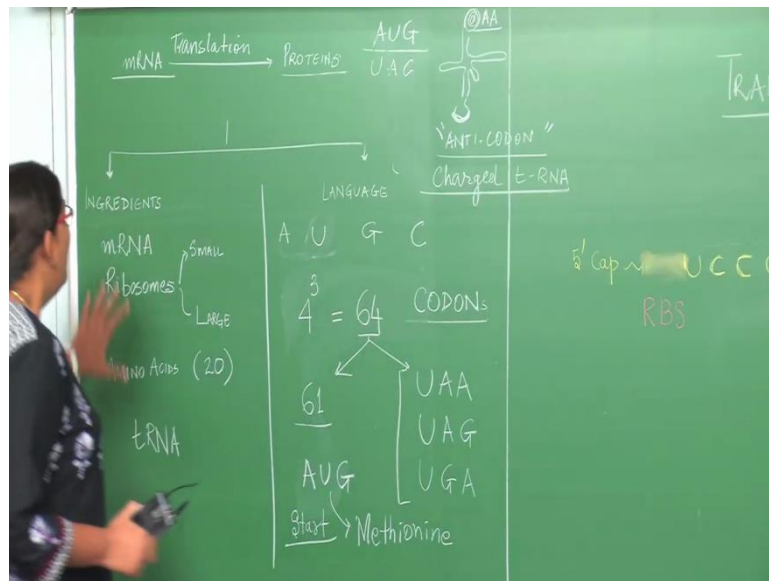 mRNA Translation PROTEINS AUG
UAG
@AA
"ANTI-CODON"
Charged t-RNA
INGREDIENTS
mRNA
Ribosomes SMALL
LARGE
Amino ACIDS (20)
tRNA
LANGUAGE
A U G C
4³ = 64 CODONS
61
AUG
Start Methionine
UAA
UAG
UGA
5' Cap ~ UCC
RBS